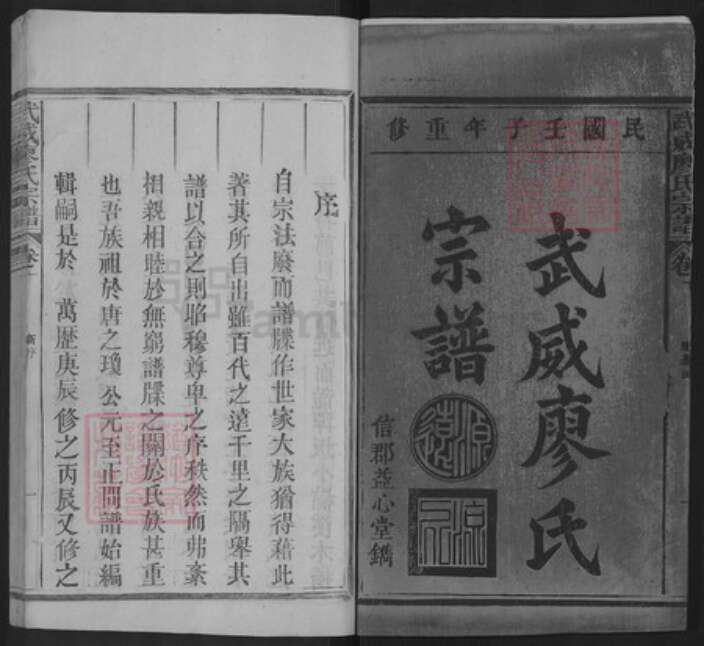 民國壬子年重修
武威廖氏
宗譜
信郡益心堂鐫
序
自宗法廢而譜牒作世家大族猶得藉此
著其所自出雖百代之遠千里之隔舉其
譜以合之則昭穆尊卑之序秩然而弗紊
相親相睦於無窮譜牒之關於氏族甚重
也吾族祖於唐之瓊公元至正間譜始編
輯嗣是於萬歷庚辰修之丙辰又修之
武威廖氏宗譜